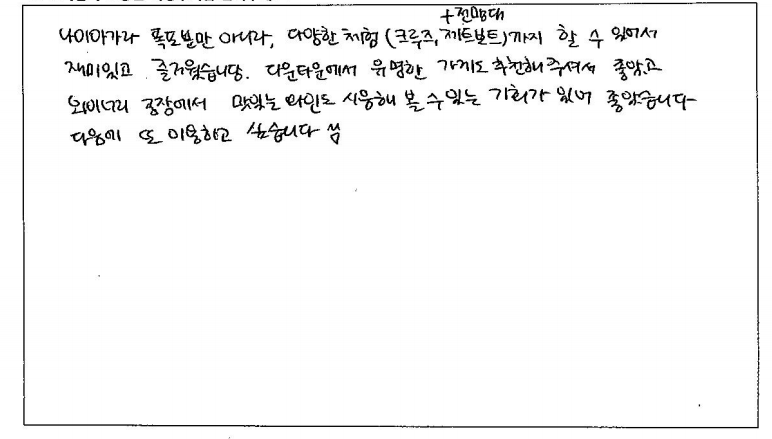 +전망대
나이아가라 폭포뿐만 아니라, 다양한 체험 (크루즈, 제트보트)까지 할 수 있어서
재미있고 즐거웠습니당. 다운타운에서 유명한 가게도 추천해 주셔서 좋았고
와이너리 공장에서 맛있는 와인도 시음해 볼 수 있는 기회가 있어 좋았습니다
다음에 또 이용하고 싶습니다